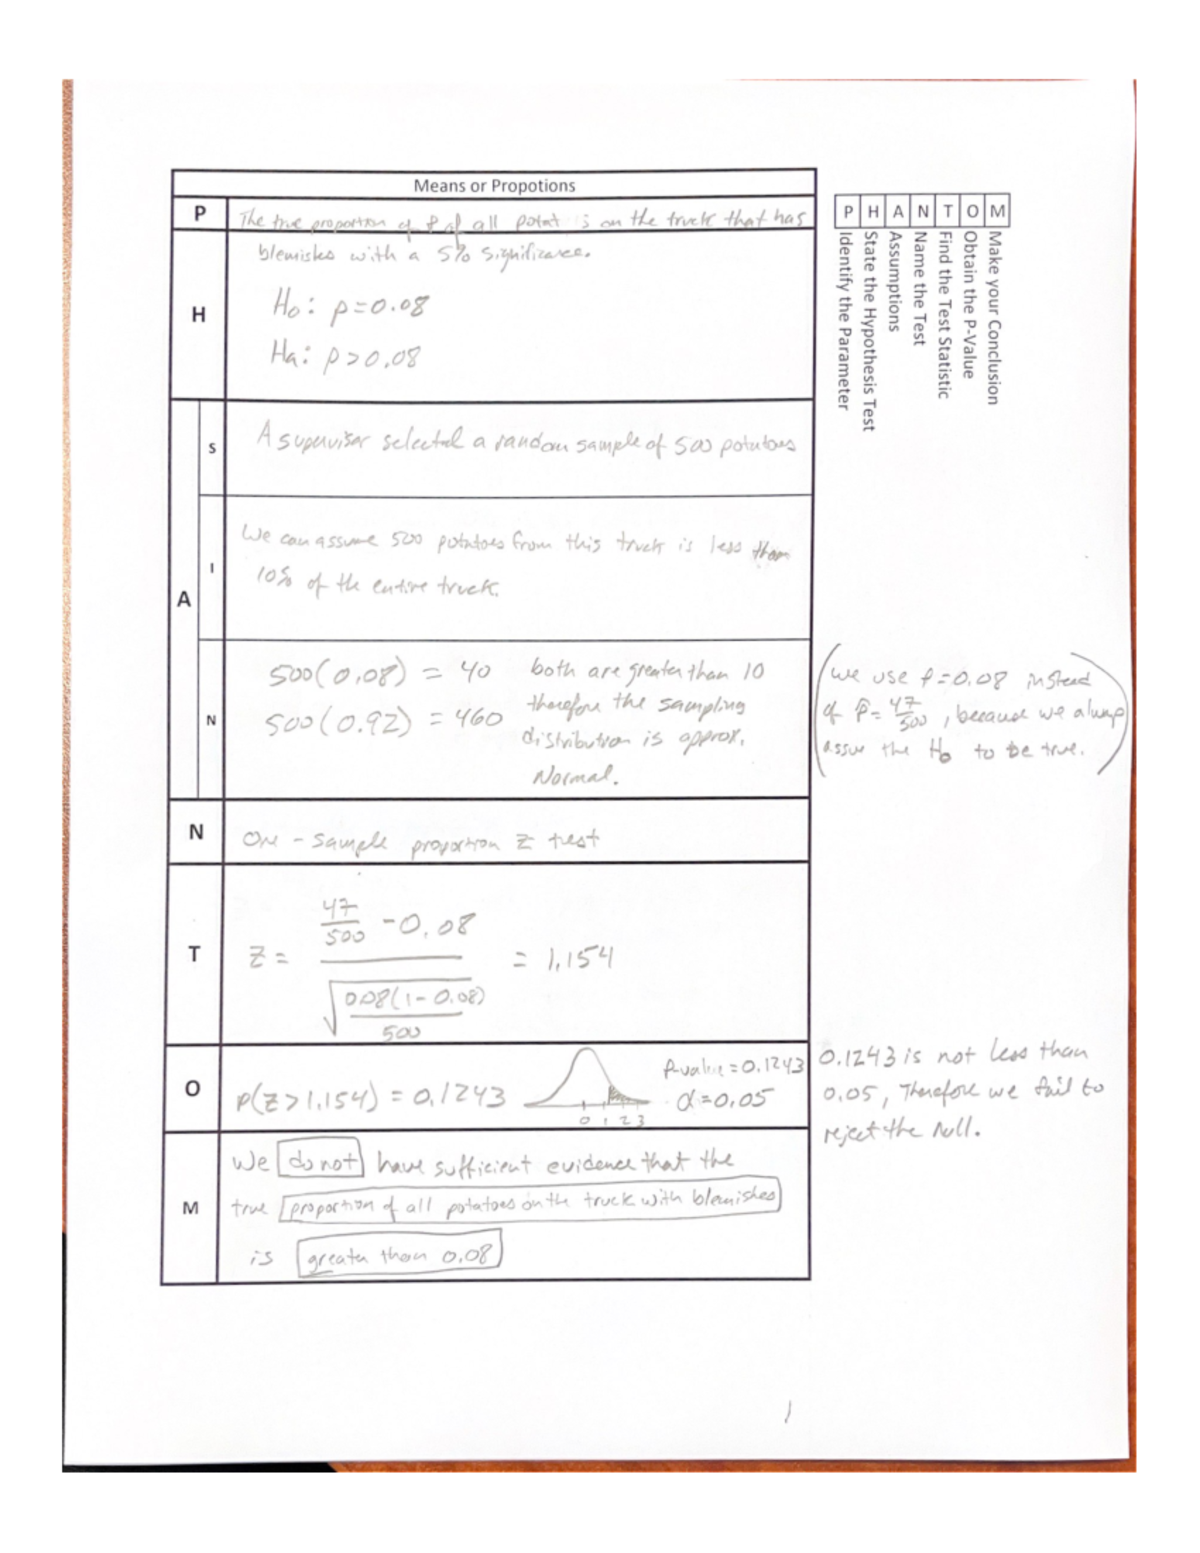 Means or Propotions
P
The true proportion of p of all potat is on the truck that has
blemishes with a 5% significance.
H
Ho: p=0.08
Ha: p>0.08
A
S
A supervisor selected a random sample of 500 potatoes
I
We can assume 500 potatoes from this truck is less than
10% of the entire truck.
N
500(0.08) = 40 both are greater than 10
500(0.92) = 460 therefore the sampling
distribution is approx.
Normal.
N
One-sample proportion z test
T
Z = (47/500 - 0.08) / √(0.08(1-0.08)/500) = 1.154
O
P(Z>1.154) = 0.1243
0 1 2 3
P-value = 0.1243
α=0.05
M
We do not have sufficient evidence that the
true proportion of all potatoes on the truck with blemishes
is greater than 0.08
P H A N T O M
Identify the Parameter
State the Hypothesis Test
Assumptions
Name the Test
Find the Test Statistic
Obtain the P-Value
Make your Conclusion
(we use p=0.08 instead
of p̂=47/500, because we always
assue the Ho to be true.)
0.1243 is not less than
0.05, Therefore we fail to
reject the null.
1